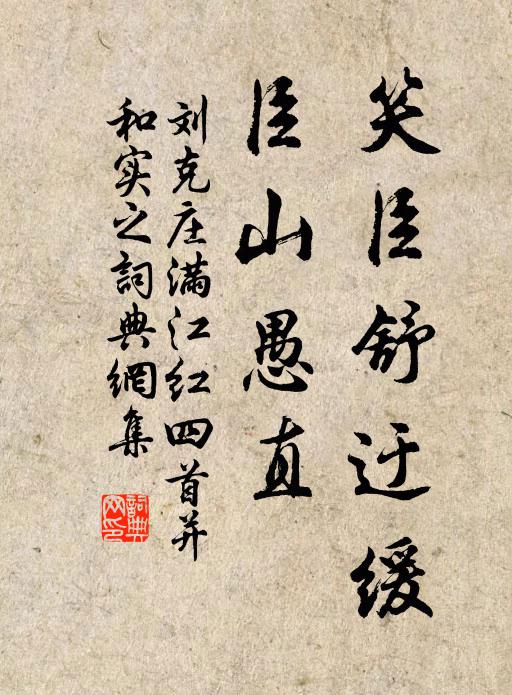 笑臣舒迂缓
臣山愚直
刘克庄满江红四首并
和实之词典網集
詞典网印